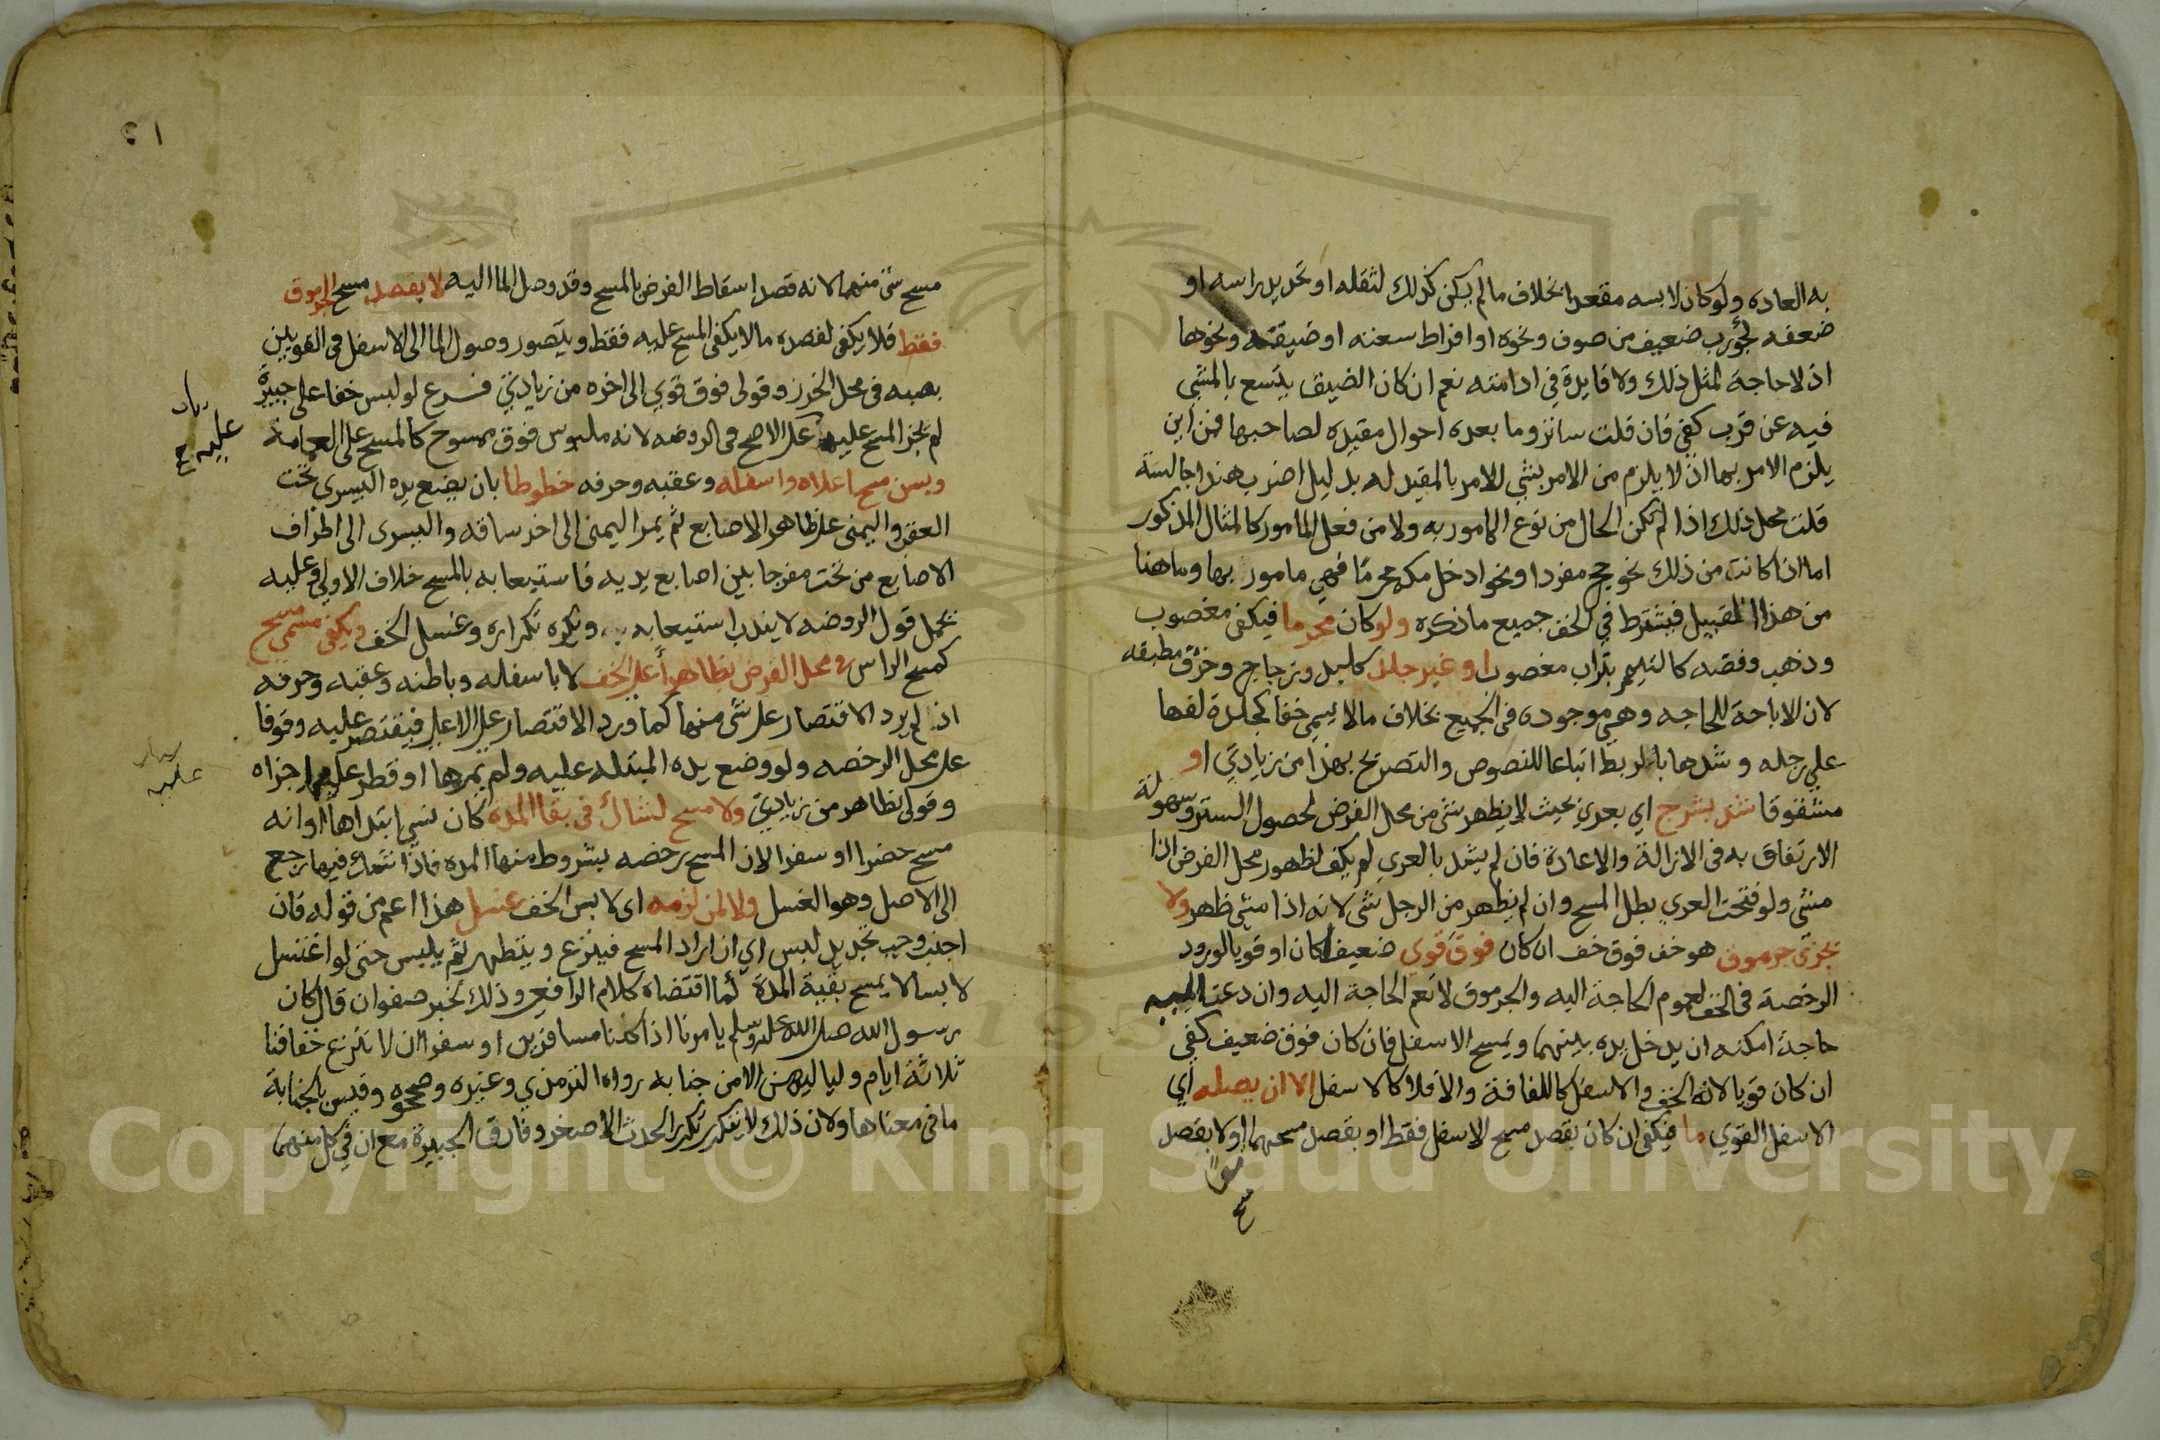 به العاده ولو كان لابسه مقعدا بخلاف ما لم يكن كذلك لثقله او تحديد راسه او
ضعفه كجورب ضعيف من صوف ونحوه او افراط سعته او ضيقه ونحوها
اذ لا حاجة لمثل ذلك ولا فايدة في ادامته نعم ان كان الضيق يتسع بالمشي
فيه عن قرب كفي فان قلت ساتر وما بعده احوال مقيده لصاحبها فمن اين
يلزم الامر بها اذ لا يلزم من الامر بشي الامر بالمقيد له بدليل اضرب هندا جالسة
قلت محل ذلك اذا لم تكن الحال من نوع المامور به ولا من فعل المامور كالمثال المذكور
اما اذا كانت من ذلك نحو حج مفردا ونحو ادخل مكه محرما فهي مامور بها وما هنا
من هذا القبيل فيشترط في الخف جميع ما ذكره ولو كان محرما فيكفي مغصوب
وذهب وفضه كالتيمم بتراب مغصوب او غير جلد كلبد وزجاج وخرق مطبقه
لان الاباحة للحاجه وهي موجوده في الجميع بخلاف ما لا يسمي خفا كجلدة لفها
علي رجله وشدها بالربط اتباعا للنصوص والتصريح بهذا من زيادتي او
مشقوقا شد بشرج اي بعري بحيث لا يظهر شي من محل الفرض لحصول الستر وسهولة
الارتفاق به في الازالة والاعادة فان لم يشد بالعري لم يكف لظهور محل الفرض اذا
مشي ولو فتحت العري بطل المسح وان لم يظهر من الرجل شي لانه اذا مشي ظهر ولا
يجزي جرموق هو خف فوق خف ان كان فوق قوي ضعيفا كان او قويا لورود
الرخصة في الخف لعموم الحاجة اليه والجرموق لا تعم الحاجة اليه وان دعت اليه
حاجة امكنه ان يدخل يده بينهما ويمسح الاسفل فان كان فوق ضعيف كفي
ان كان قويا لانه الخف والاسفل كاللفافة والا فلا كالاسفل الا ان يصله اي
الاسفل القوي ما فيكفي ان كان بقصد مسح الاسفل فقط او بقصد مسحهما او لا بقصد
مسح شي منهما لانه قصد اسقاط الفرض بالمسح وقد وصل الما اليه لا بقصد مسح الجرموق
فقط فلا يكفي لقصده ما لا يكفي المسح عليه فقط ويتصور وصول الما الي الاسفل في القويين
بصبه في محل الخرز وقولي فوق قوي الى اخره من زيادتي فرع لو لبس خفا على جبيرة
لم يجز المسح عليه على الاصح في الروضه لانه ملبوس فوق ممسوح كالمسح على العمامة
ويسن مسح اعلاه واسفله وعقبه وحرفه خطوطا بان يضع يده اليسري تحت
العقب واليمني على ظاهر الاصابع ثم يمر اليمني الى اخر ساقه واليسرى الى اطراف
الاصابع من تحت مفرجا بين اصابع يديه فاستيعابه بالمسح خلاف الاولي وعليه
يحمل قول الروضه لا يندب استيعابه ويكره تكراره وغسل الخف ويكفي مسمي مسح
كمسح الراس في محل الفرض بظاهر اعلى الخف لا باسفله وباطنه وعقبه وحرفه
اذ لم يرد الاقتصار على شي منها كما ورد الاقتصار على الاعلي فيقتصر عليه وقوفا
على محل الرخصه ولو وضع يده المبتله عليه ولم يمرها او قطر عليه اجزاه
وقولي بظاهر من زيادتي ولا مسح لشاك في بقا المدة كان نسي ابتداها او انه
مسح حضرا او سفرا لان المسح رخصه بشروط منها المدة فاذا شك فيها رجع
الى الاصل وهو الغسل ولا لمن لزمه اي لابس الخف غسل هذا اعم من قوله فان
اجنب وجب تجديد لبس اي ان اراد المسح فينزع ويتطهر ثم يلبس حتى لو اغتسل
لابسا لا يمسح بقية المدة كما اقتضاه كلام الرافعي وذلك لخبر صفوان قال كان
رسول الله صلى الله عليه وسلم يامرنا اذا كنا مسافرين او سفرا ان لا ننزع خفافنا
ثلاثة ايام ولياليهن الا من جنابه رواه الترمذي وغيره وصححوه وقيس بالجنابة
ما في معناها ولان ذلك لا يتكرر تكرر الحدث الاصغر وفارق الجبيرة مع ان في كل منهما